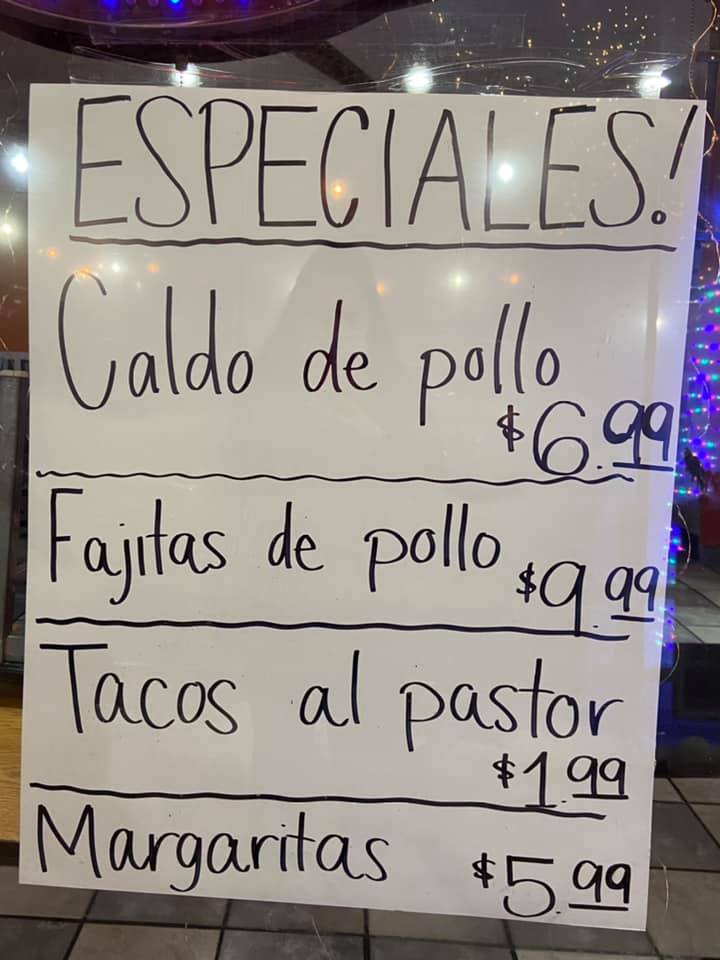 ESPECIALES!
Caldo de pollo
$6.99
Fajitas de pollo $9.99
Tacos al pastor
$1.99
Margaritas $5.99